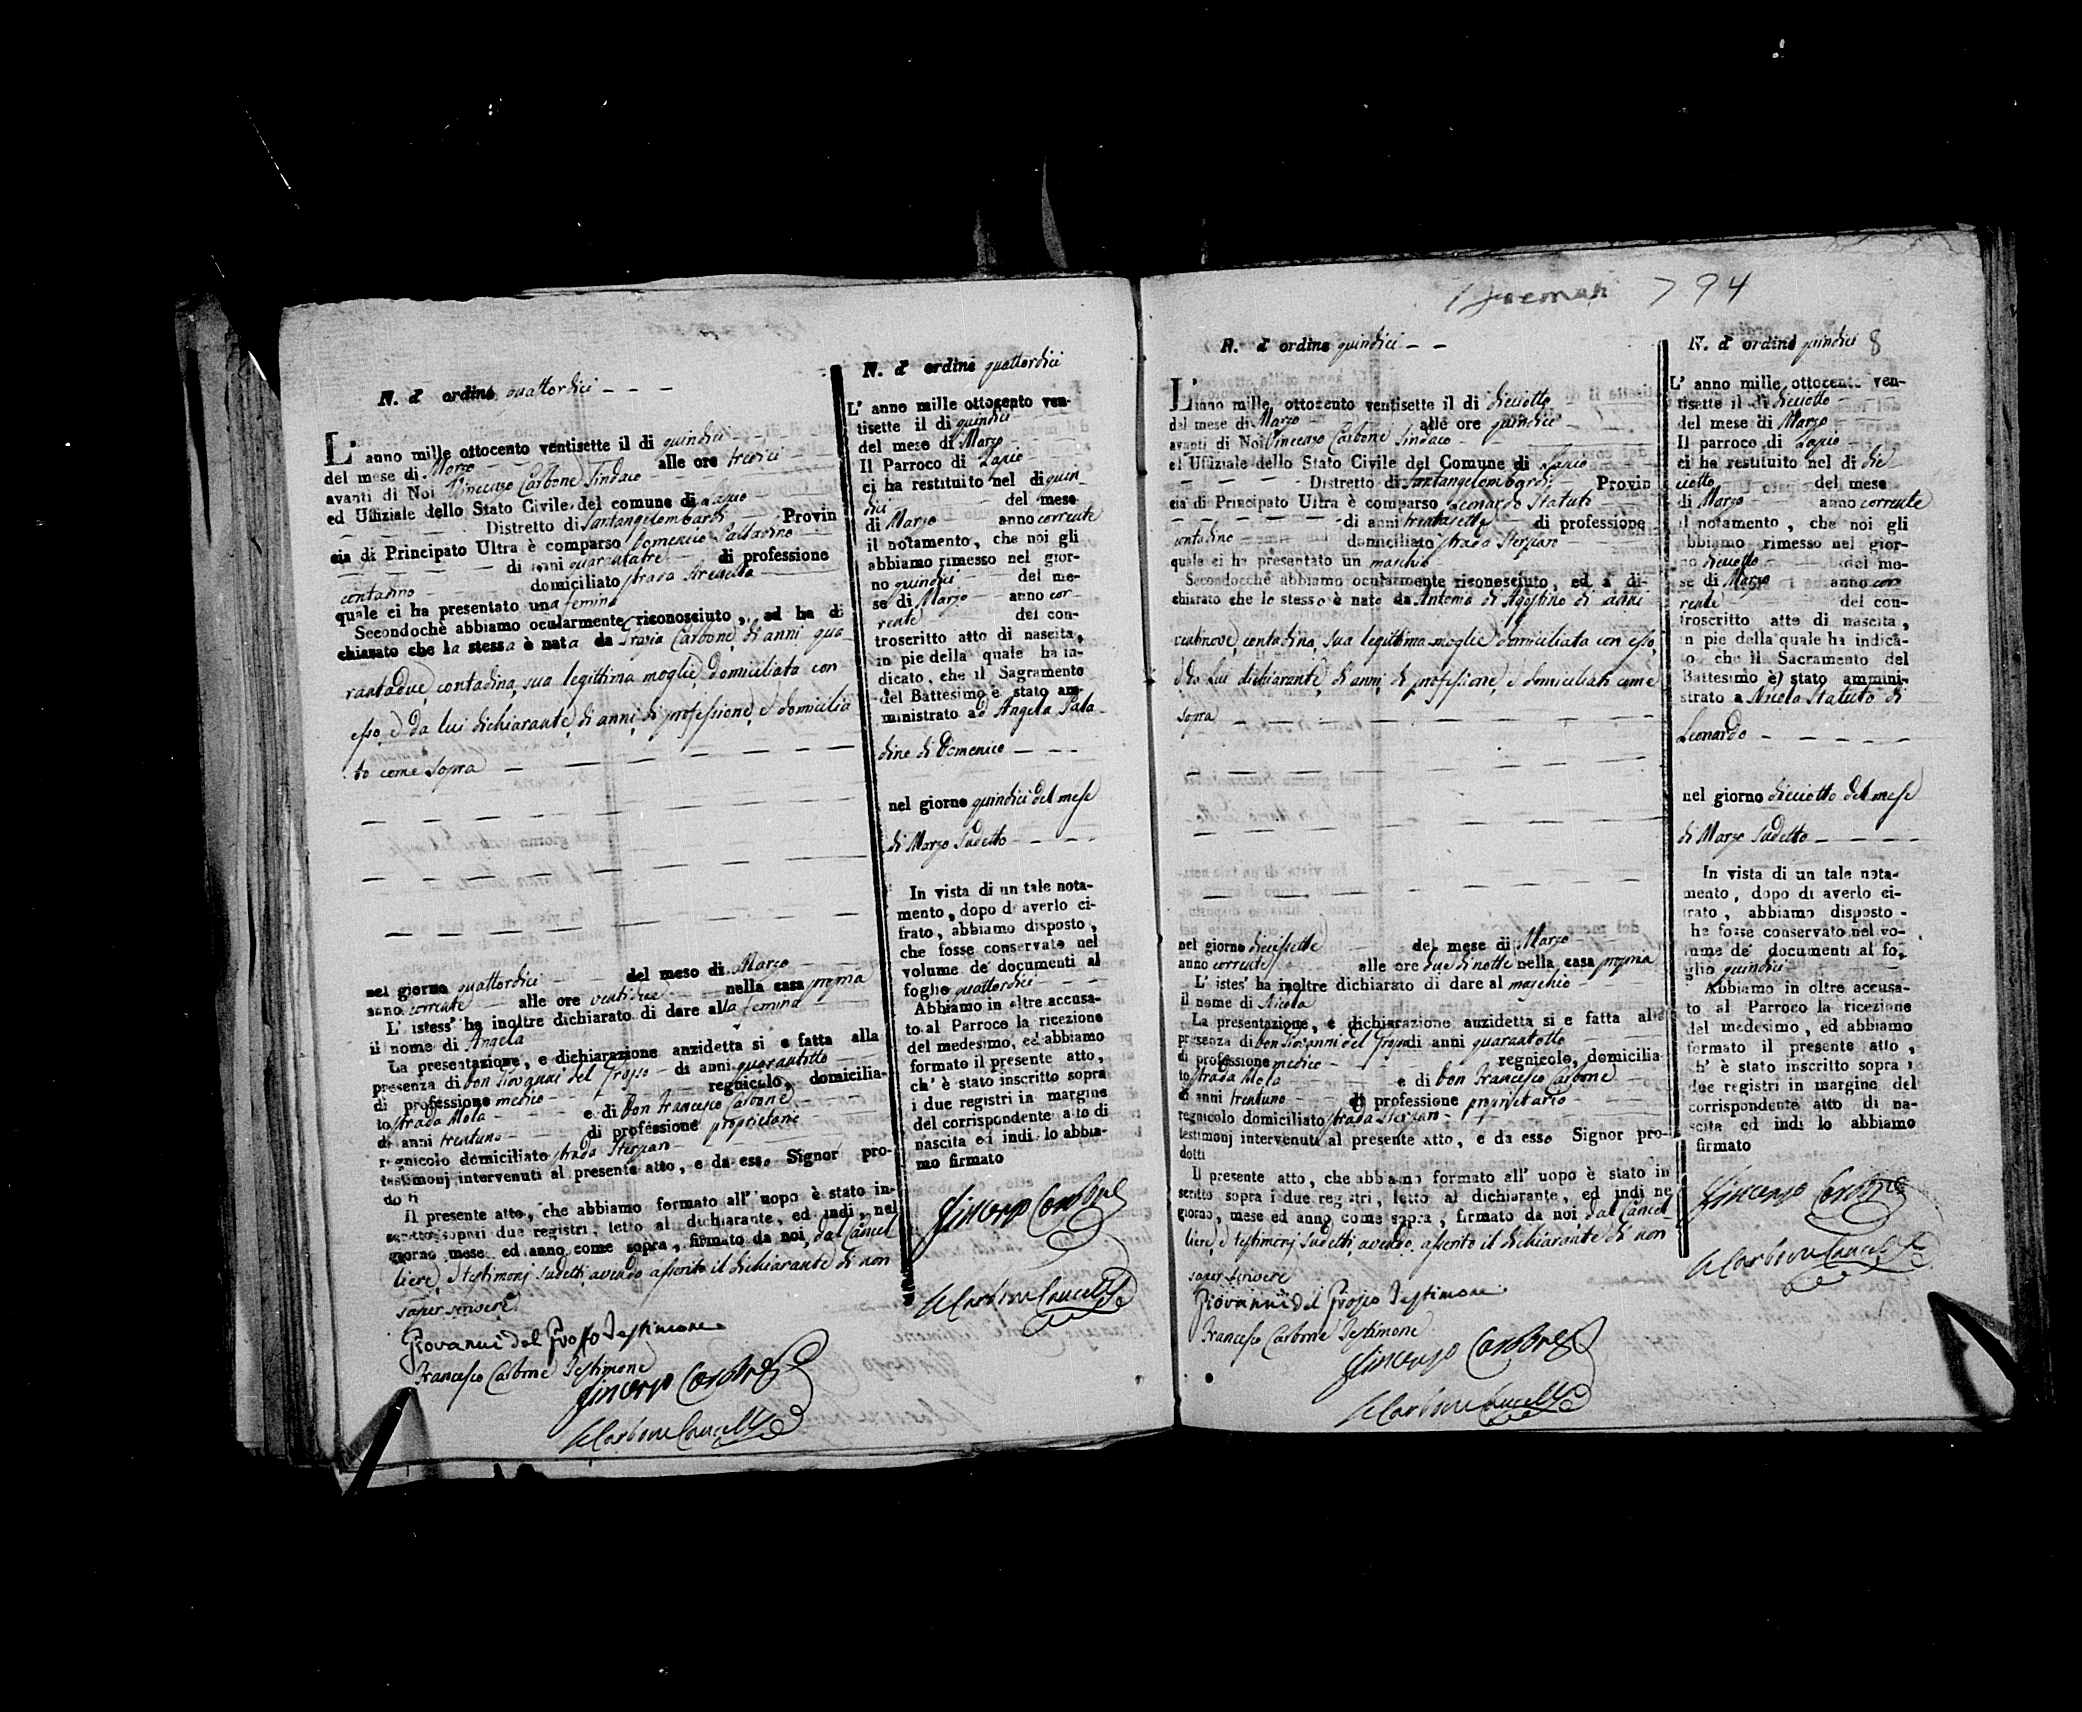 794
N. d' ordine quattordici
L' anno mille ottocento ventisette il di quindici
del mese di Marzo alle ore tredici
avanti di Noi Vincenzo Carbone Sindaco
ed Uffiziale dello Stato Civile del comune di Lapio
Distretto di Santangelombardi Provin
cia di Principato Ultra è comparso Domenico Palladino
di anni quarantatre di professione
contadino domiciliato strada
quale ci ha presentato una femina
Secondochè abbiamo ocularmente riconosciuto, ed ha di
chiarato che la stessa è nata da Grazia Carbone di anni qua
rantadue, contadina, sua legittima moglie, domiciliata con
esso, e da lui dichiarante, di anni, di professione, e domicilia
to come sopra
nel giorno quattordici del mese di Marzo
anno corrente alle ore ventidue nella casa propria
L' istess' ha inoltre dichiarato di dare alla femina
il nome di Angela
La presentazione, e dichiarazione anzidetta si e fatta alla
presenza di Don Giovanni del Grosso di anni quarantotto
di professione medico regnicolo, domicilia-
to strada Mola e di Don Francesco Carbone
di anni trentuno di professione proprietario
regnicolo domiciliato strada Sterpan
testimonj intervenuti al presente atto, e da esso Signor pro-
dotti
Il presente atto, che abbiamo formato all' uopo è stato in-
scritto sopra i due registri, letto al dichiarante, ed indi, nel
giorno mese ed anno come sopra, firmato da noi, dal Cancel
liere, e testimonj sudetti, avendo asserito il dichiarante di non
saper scrivere
Giovanni del Grosso Testimone
Francesco Carbone Testimone
Vincenzo Carbone
Carbone Cancell
N. d' ordine quattordici
L' anno mille ottocento ven-
tisette il di quindici
del mese di Marzo
Il Parroco di Lapio
ci ha restituito nel di quin
dici del mese
di Marzo anno corrente
il notamento, che noi gli
abbiamo rimesso nel gior-
no quindici del me-
se di Marzo anno cor-
rente del con-
troscritto atto di nascita,
in pie della quale ha in-
dicato, che il Sagramento
del Battesimo è stato am-
ministrato ad Angela Pala
dino di Domenico
nel giorno quindici del mese
di Marzo sudetto
In vista di un tale nota-
mento, dopo di averlo ci-
frato, abbiamo disposto,
che fosse conservato nel
volume de' documenti al
foglio quattordici
Abbiamo in oltre accusa-
to al Parroco la ricezione
del medesimo, ed abbiamo
formato il presente atto,
ch' è stato inscritto sopra
i due registri in margine
del corrispondente atto di
nascita ed indi lo abbia-
mo firmato
Vincenzo Carbone
Carbone Cancell
N. d' ordine quindici
L' anno mille ottocento ventisette il di diciotto
del mese di Marzo alle ore quindici
avanti di Noi Vincenzo Carbone Sindaco
ed Uffiziale dello Stato Civile del Comune di Lapio
Distretto di Santangelombardi Provin
cia di Principato Ultra è comparso Leonardo Statuti
di anni trentasette di professione
contadino domiciliato strada Sterpan
quale ci ha presentato un maschio
Secondocchè abbiamo ocularmente riconosciuto, ed a di-
chiarato che lo stesso è nato da Antonia di Agostino di anni
ventinove, contadina, sua legittima moglie domiciliata con esso,
e da lui dichiarante, di anni, di professione, e domiciliati come
sopra
nel giorno diecisette del mese di Marzo
anno corrente alle ore due di notte nella casa propria
L' istes' ha inoltre dichiarato di dare al maschio
il nome di Nicola
La presentazione, e dichiarazione anzidetta si e fatta al
presenza di Don Giovanni del Grosso di anni quarantotto
di professione medico regnicolo, domicilia-
to strada Mola e di Don Francesco Carbone
di anni trentuno di professione proprietario
regnicolo domiciliato strada Sterpan
testimonj intervenuti al presente atto, e da esso Signor pro-
dotti
Il presente atto, che abbiamo formato all' uopo è stato in
scritto sopra i due registri, letto al dichiarante, ed indi ne
giorno, mese ed anno come sopra, firmato da noi, dal Cancel
liere, e testimonj sudetti, avendo asserito il dichiarante di non
saper scrivere
Giovanni del Grosso Testimone
Francesco Carbone Testimone
Vincenzo Carbone
Carbone Cancell
N. d' ordine quindici 8
L' anno mille ottocento ven-
tisette il di diciotto
del mese di Marzo
Il parroco di Lapio
ci ha restituito nel di dic
iotto del mese
di Marzo anno corrente
il notamento, che noi gli
abbiamo rimesso nel gior-
no diciotto del me-
se di Marzo anno cor
rente del con-
troscritto atto di nascita,
in pie della quale ha indica-
to che il Sacramento del
Battesimo è stato ammini-
strato a Nicola Statuto di
Leonardo
nel giorno diciotto del mese
di Marzo sudetto
In vista di un tale nota-
mento, dopo di averlo ci-
frato, abbiamo disposto
he fosse conservato nel vo-
lume de' documenti al fo-
glio quindici
Abbiamo in oltre accusa-
to al Parroco la ricezione
del medesimo, ed abbiamo
formato il presente atto,
ch' è stato inscritto sopra i
due registri in margine del
corrispondente atto di na-
scita ed indi lo abbiamo
firmato
Vincenzo Carbone
Carbone Cancell